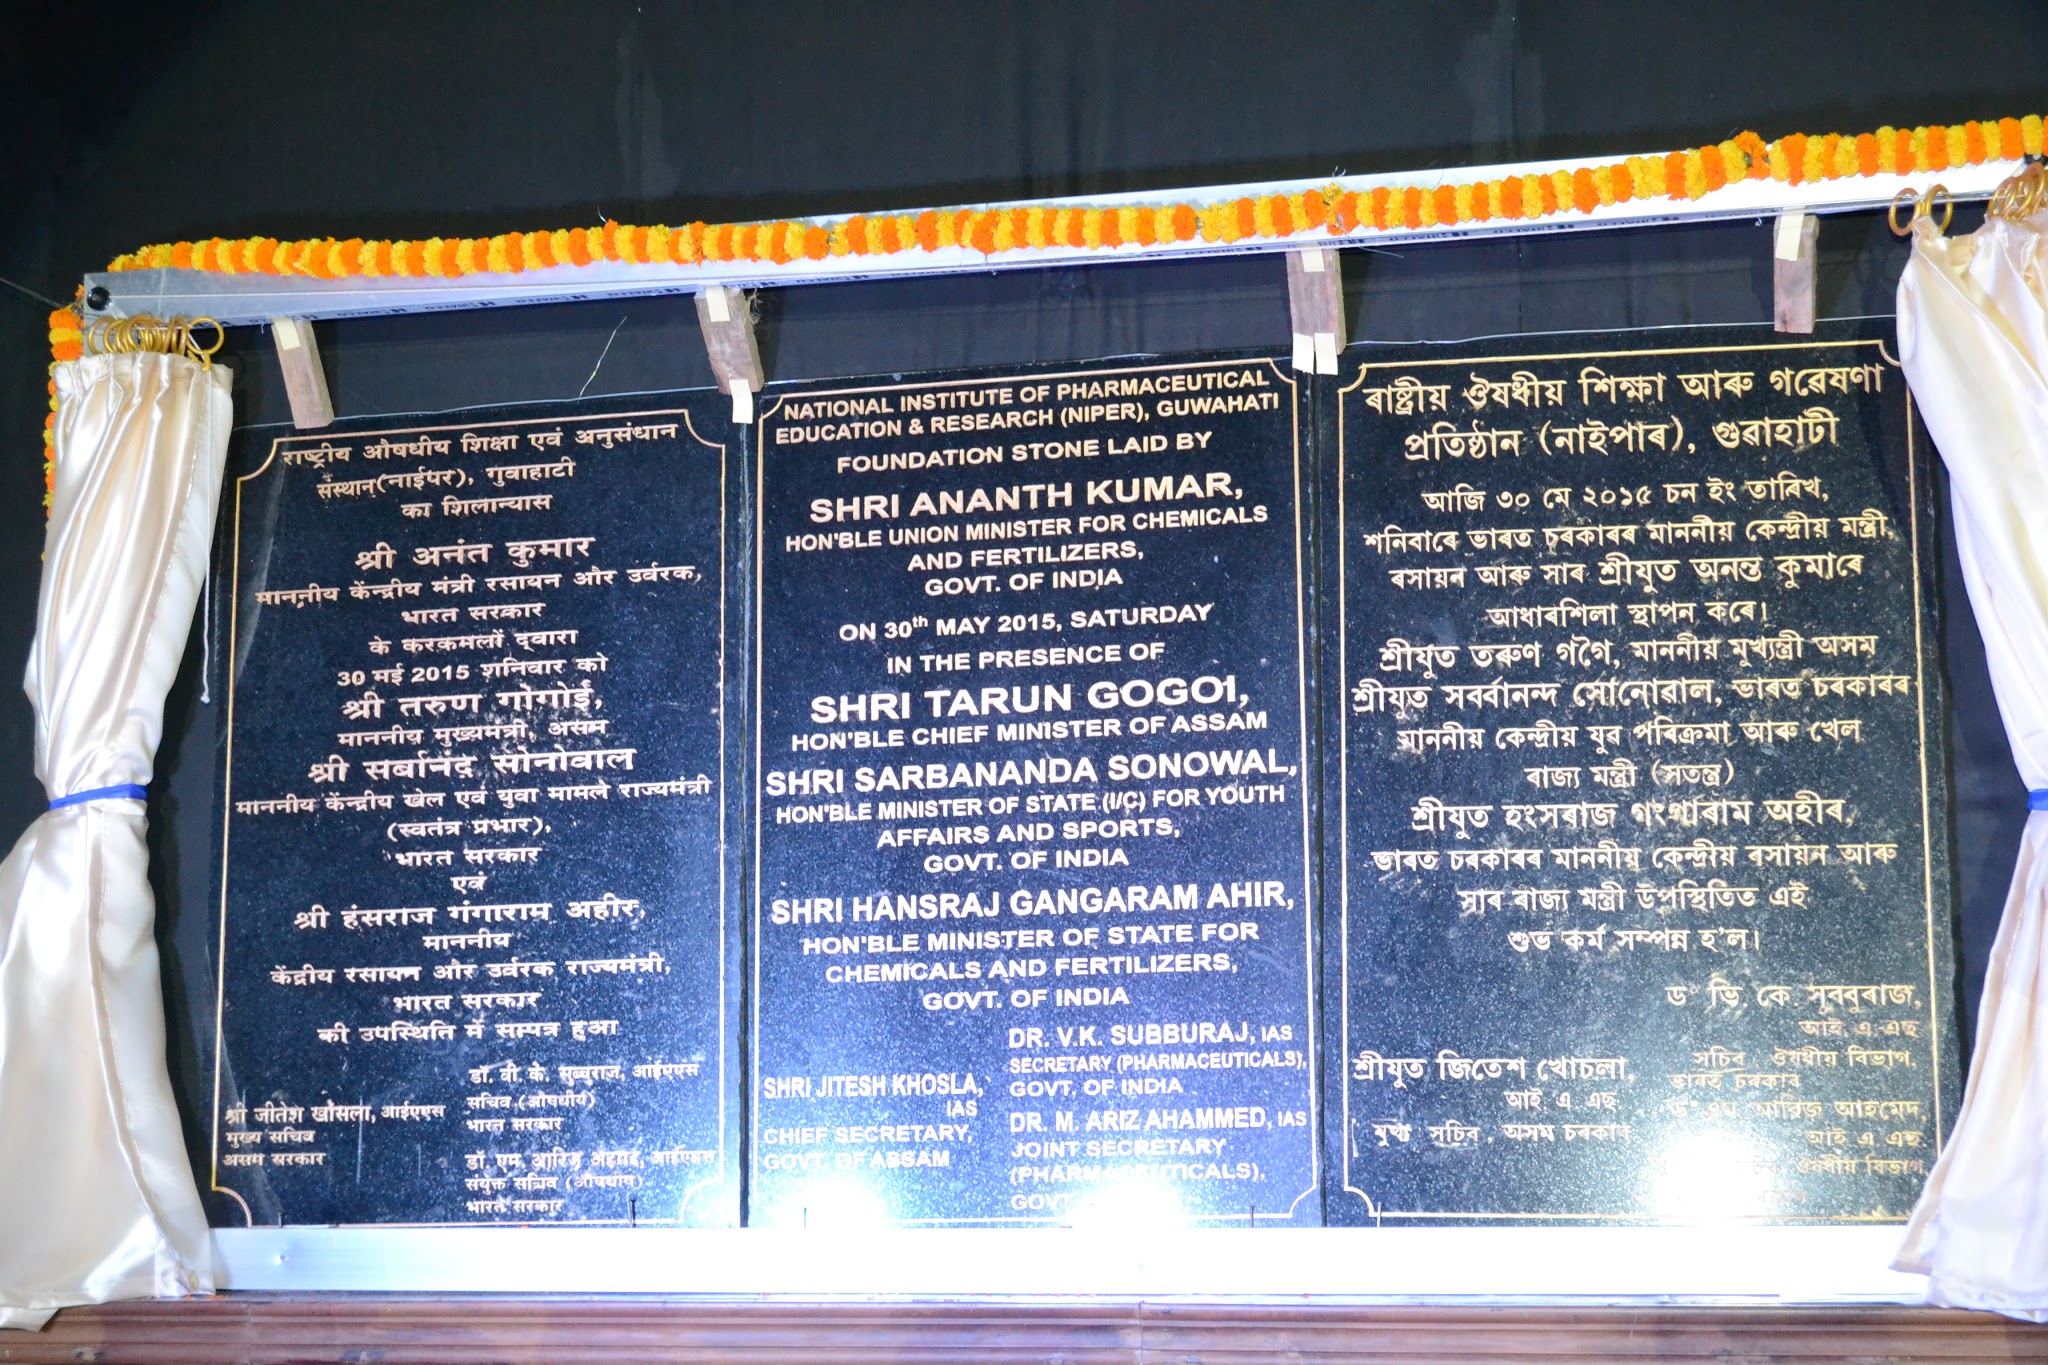 राष्ट्रीय औषधीय शिक्षा एवं अनुसंधान
संस्थान(नाईपर), गुवाहाटी
का शिलान्यास
श्री अनंत कुमार
माननीय केंन्द्रीय मंत्री रसायन और उर्वरक,
भारत सरकार
के करकमलों द्वारा
30 मई 2015 शनिवार को
श्री तरुण गोगोई,
माननीय मुख्यमंत्री, असम
श्री सर्बानंद सोनोवाल
माननीय केंन्द्रीय खेल एवं युवा मामले राज्यमंत्री
(स्वतंत्र प्रभार),
भारत सरकार
एवं
श्री हंसराज गंगाराम अहीर,
माननीय
केंद्रीय रसायन और उर्वरक राज्यमंत्री,
भारत सरकार
की उपस्थिति में सम्पन्न हुआ
डॉ. वी. के. सुब्बुराज, आईएएस
सचिव (औषधीय)
भारत सरकार
श्री जीतेश खोसला, आईएएस
मुख्य सचिव
असम सरकार
डॉ. एम. आरिज अहमद, आईएएस
संयुक्त सचिव (औषधीय)
भारत सरकार
NATIONAL INSTITUTE OF PHARMACEUTICAL
EDUCATION & RESEARCH (NIPER), GUWAHATI
FOUNDATION STONE LAID BY
SHRI ANANTH KUMAR,
HON'BLE UNION MINISTER FOR CHEMICALS
AND FERTILIZERS,
GOVT. OF INDIA
ON 30th MAY 2015, SATURDAY
IN THE PRESENCE OF
SHRI TARUN GOGOI,
HON'BLE CHIEF MINISTER OF ASSAM
SHRI SARBANANDA SONOWAL,
HON'BLE MINISTER OF STATE (I/C) FOR YOUTH
AFFAIRS AND SPORTS,
GOVT. OF INDIA
SHRI HANSRAJ GANGARAM AHIR,
HON'BLE MINISTER OF STATE FOR
CHEMICALS AND FERTILIZERS,
GOVT. OF INDIA
DR. V.K. SUBBURAJ, IAS
SECRETARY (PHARMACEUTICALS),
GOVT. OF INDIA
SHRI JITESH KHOSLA,
IAS
CHIEF SECRETARY,
GOVT. OF ASSAM
DR. M. ARIZ AHAMMED, IAS
JOINT SECRETARY
(PHARMACEUTICALS),
GOVT.
ৰাষ্ট্ৰীয় ঔষধীয় শিক্ষা আৰু গৱেষণা
প্ৰতিষ্ঠান (নাইপাৰ), গুৱাহাটী
আজি ৩০ মে ২০১৫ চন ইং তাৰিখ,
শনিবাৰে ভাৰত চৰকাৰৰ মাননীয় কেন্দ্ৰীয় মন্ত্ৰী,
ৰসায়ন আৰু সাৰ শ্ৰীযুত অনন্ত কুমাৰে
আধাৰশিলা স্থাপন কৰে।
শ্ৰীযুত তৰুণ গগৈ, মাননীয় মুখ্যমন্ত্ৰী অসম
শ্ৰীযুত সৰ্বানন্দ সোনোৱাল, ভাৰত চৰকাৰৰ
মাননীয় কেন্দ্ৰীয় যুৱ পৰিক্ৰমা আৰু খেল
ৰাজ্য মন্ত্ৰী (সতন্ত্ৰ)
শ্ৰীযুত হংসৰাজ গংগাৰাম অহীৰ,
ভাৰত চৰকাৰৰ মাননীয় কেন্দ্ৰীয় ৰসায়ন আৰু
সাৰ ৰাজ্য মন্ত্ৰী উপস্থিতিত এই
শুভ কৰ্ম সম্পন্ন হ'ল।
ড° ভি. কে. সুববুৰাজ,
আই. এ. এছ.
সচিব, ঔষধীয় বিভাগ,
ভাৰত চৰকাৰ
শ্ৰীযুত জিতেশ খোচলা,
আই. এ. এছ.
মুখ্য সচিব, অসম চৰকাৰ
ড° এম. আৰিজ আহমেদ,
আই. এ. এছ.
ঔষধীয় বিভাগ